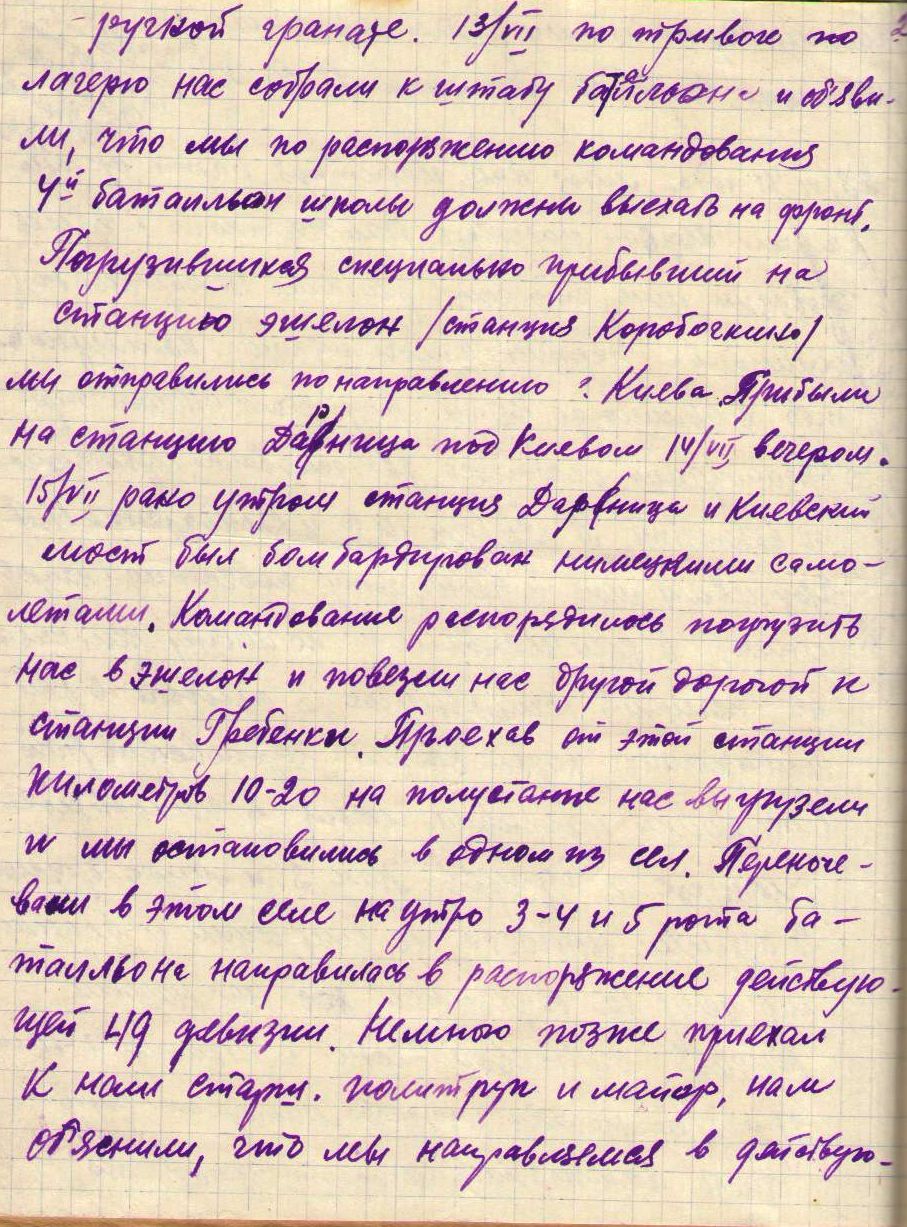 ручной гранате. 13/VII по тривоге по 2
лагерю нас собрали к штабу батальона и обяви-
ли, что мы по распоряжению командования
4й баталльон школы должны выехать на фронт.
Погрузившихся специально прибывший на
станцию эшелон /станция Коробочкино/
мы отправились по направлению г. Киева. Прибыли
на станцию Дарница под Киевом 14/VII вечером.
15/VII рано утром станция Дарница и Киевский
мост был бомбардирован нимецкими само-
летами. Командование распорядилось погрузить
нас в эшелон и повезли нас другой дорогой к
станции Гребенки. Проехав от этой станции
километров 10-20 на полустанке нас выгрузели
и мы остановились в одном из сел. Переноче-
вали в этом селе на утро 3-4 и 5 рота ба-
талльона направилась в распоряжение действую-
щей 49 девизии. Немного позже приехал
к нам старш. политрук и майор, нам
обяснили, что мы направляемся в действую-